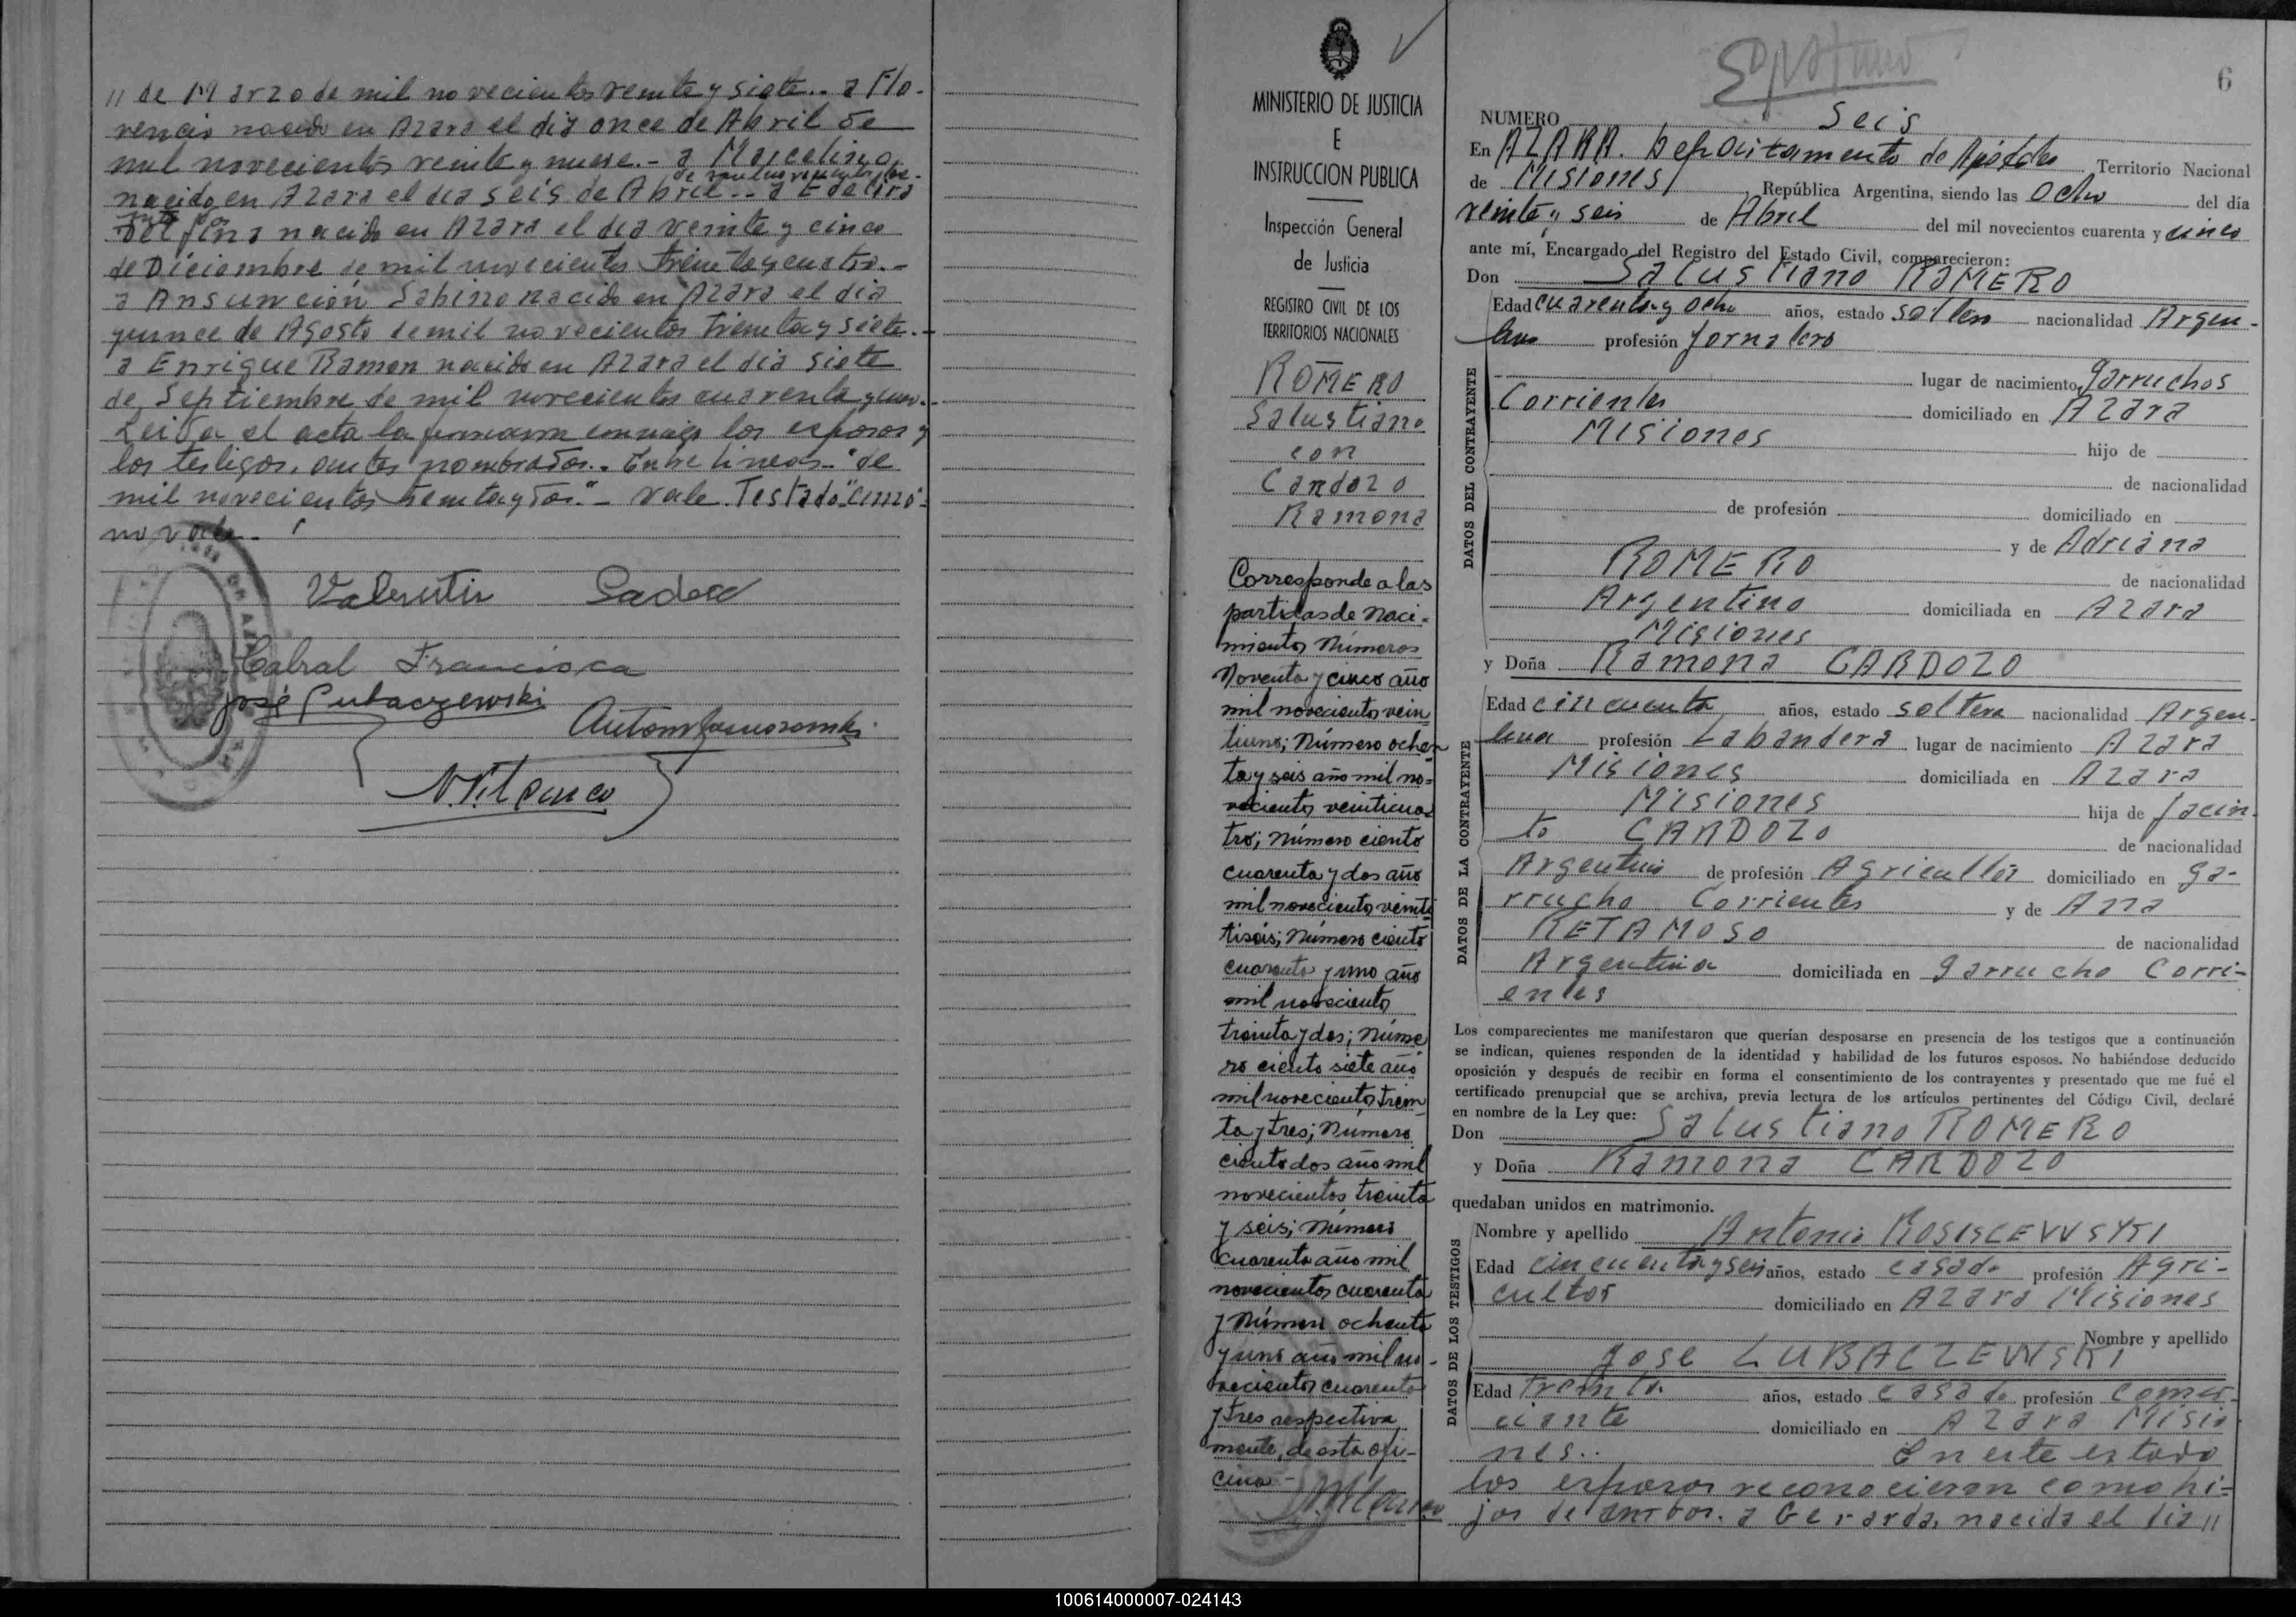 // de Marzo de mil novecientos veinte y siete.. a Flo-
rencio nacido en Azara el dia once de Abril de
mil novecientos veinte y nueve.- a Marcelino
nacido en Azara el dia seis de Abril.. a Edelira
Delfina nacido en Azara el dia veinte y cinco
de Diciembre de mil novecientos treinta y cuatro.-
a Ansunción Sabino nacido en Azara el dia
quince de Agosto de mil novecientos treinta y siete.-
a Enrique Ramon nacido en Azara el dia siete
de Septiembre de mil novecientos cuarenta y uno.-
Leida el acta la firmaron conmigo los esposos y
los testigos, antes nombrados.. Entre lineas- "de
mil novecientos treinta y dos."- vale. Testado "cinco":
no vale.-
Valentin
Cabral Francisca
José Lubaczewski
MINISTERIO DE JUSTICIA
E
INSTRUCCION PUBLICA
Inspección General
de Justicia
REGISTRO CIVIL DE LOS
TERRITORIOS NACIONALES
ROMERO
Salustiano
con
Cardozo
Ramona
Corresponde a las
partidas de naci-
mientos Números
Noventa y cinco año
mil novecientos vein
tiuno; Número ochen
ta y seis año mil no-
vecientos veinticua
tro; Número ciento
cuarenta y dos año
mil novecientos veinti
tiseis; Número ciento
cuarenta y uno año
mil novecientos
treinta y dos; Núme
ro ciento siete año
mil novecientos trein
ta y tres; Número
ciento dos año mil
novecientos treinta
y seis; Número
Cuarenta año mil
novecientos cuarenta
y Número ochenta
y uno año mil no-
vecientos cuarenta
y tres respectiva
mente, de esta ofi-
cina-
6
NUMERO Seis
En AZARA. Departamento de Apóstoles Territorio Nacional
de Misiones, República Argentina, siendo las Ocho del día
veinte y seis de Abril del mil novecientos cuarenta y cinco
ante mí, Encargado del Registro del Estado Civil, comparecieron:
Don Salustiano ROMERO
DATOS DEL CONTRAYENTE
Edad cuarenta y ocho años, estado soltero nacionalidad Argen-
tino profesión Jornalero
lugar de nacimiento Garruchos
Corrientes domiciliado en Azara
Misiones hijo de
de nacionalidad
de profesión domiciliado en
y de Adriana
ROMERO de nacionalidad
Argentino domiciliada en Azara
Misiones
y Doña Ramona CARDOZO
DATOS DE LA CONTRAYENTE
Edad cincuenta años, estado soltera nacionalidad Argen-
tina profesión Labandera lugar de nacimiento Azara
Misiones domiciliada en Azara
Misiones hija de Jacin-
to CARDOZO de nacionalidad
Argentino de profesión Agricultor domiciliado en Ga-
rrucho Corrientes y de Ana
RETAMOSO de nacionalidad
Argentina domiciliada en Garrucho Corri-
entes
Los comparecientes me manifestaron que querían desposarse en presencia de los testigos que a continuación
se indican, quienes responden de la identidad y habilidad de los futuros esposos. No habiéndose deducido
oposición y después de recibir en forma el consentimiento de los contrayentes y presentado que me fué el
certificado prenupcial que se archiva, previa lectura de los artículos pertinentes del Código Civil, declaré
en nombre de la Ley que:
Don Salustiano ROMERO
y Doña Ramona CARDOZO
quedaban unidos en matrimonio.
DATOS DE LOS TESTIGOS
Nombre y apellido Antonio ROSISCEWSKI
Edad cincuenta y seis años, estado casado profesión Agri-
cultor domiciliado en Azara Misiones
Nombre y apellido
Jose LUBACZEWSKI
Edad treinta años, estado casado profesión Comer-
ciante domiciliado en Azara Misio
nes.. En este estado
los esposos reconocieron como hi-
jos de ambos. a Gerarda, nacida el dia //
100614000007-024143